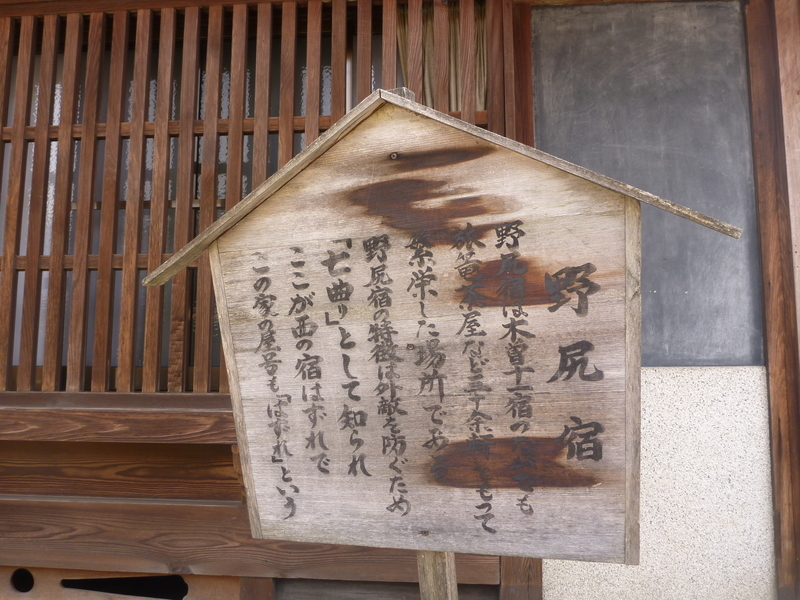 野尻宿
野尻宿は木曽十一宿の も
旅籠茶屋など三十余軒 もって
繁栄した場所である
野尻宿の特徴は外敵を防ぐため
「七曲り」として知られ
ここが西の宿はずれで
この家の屋号も「はずれ」という